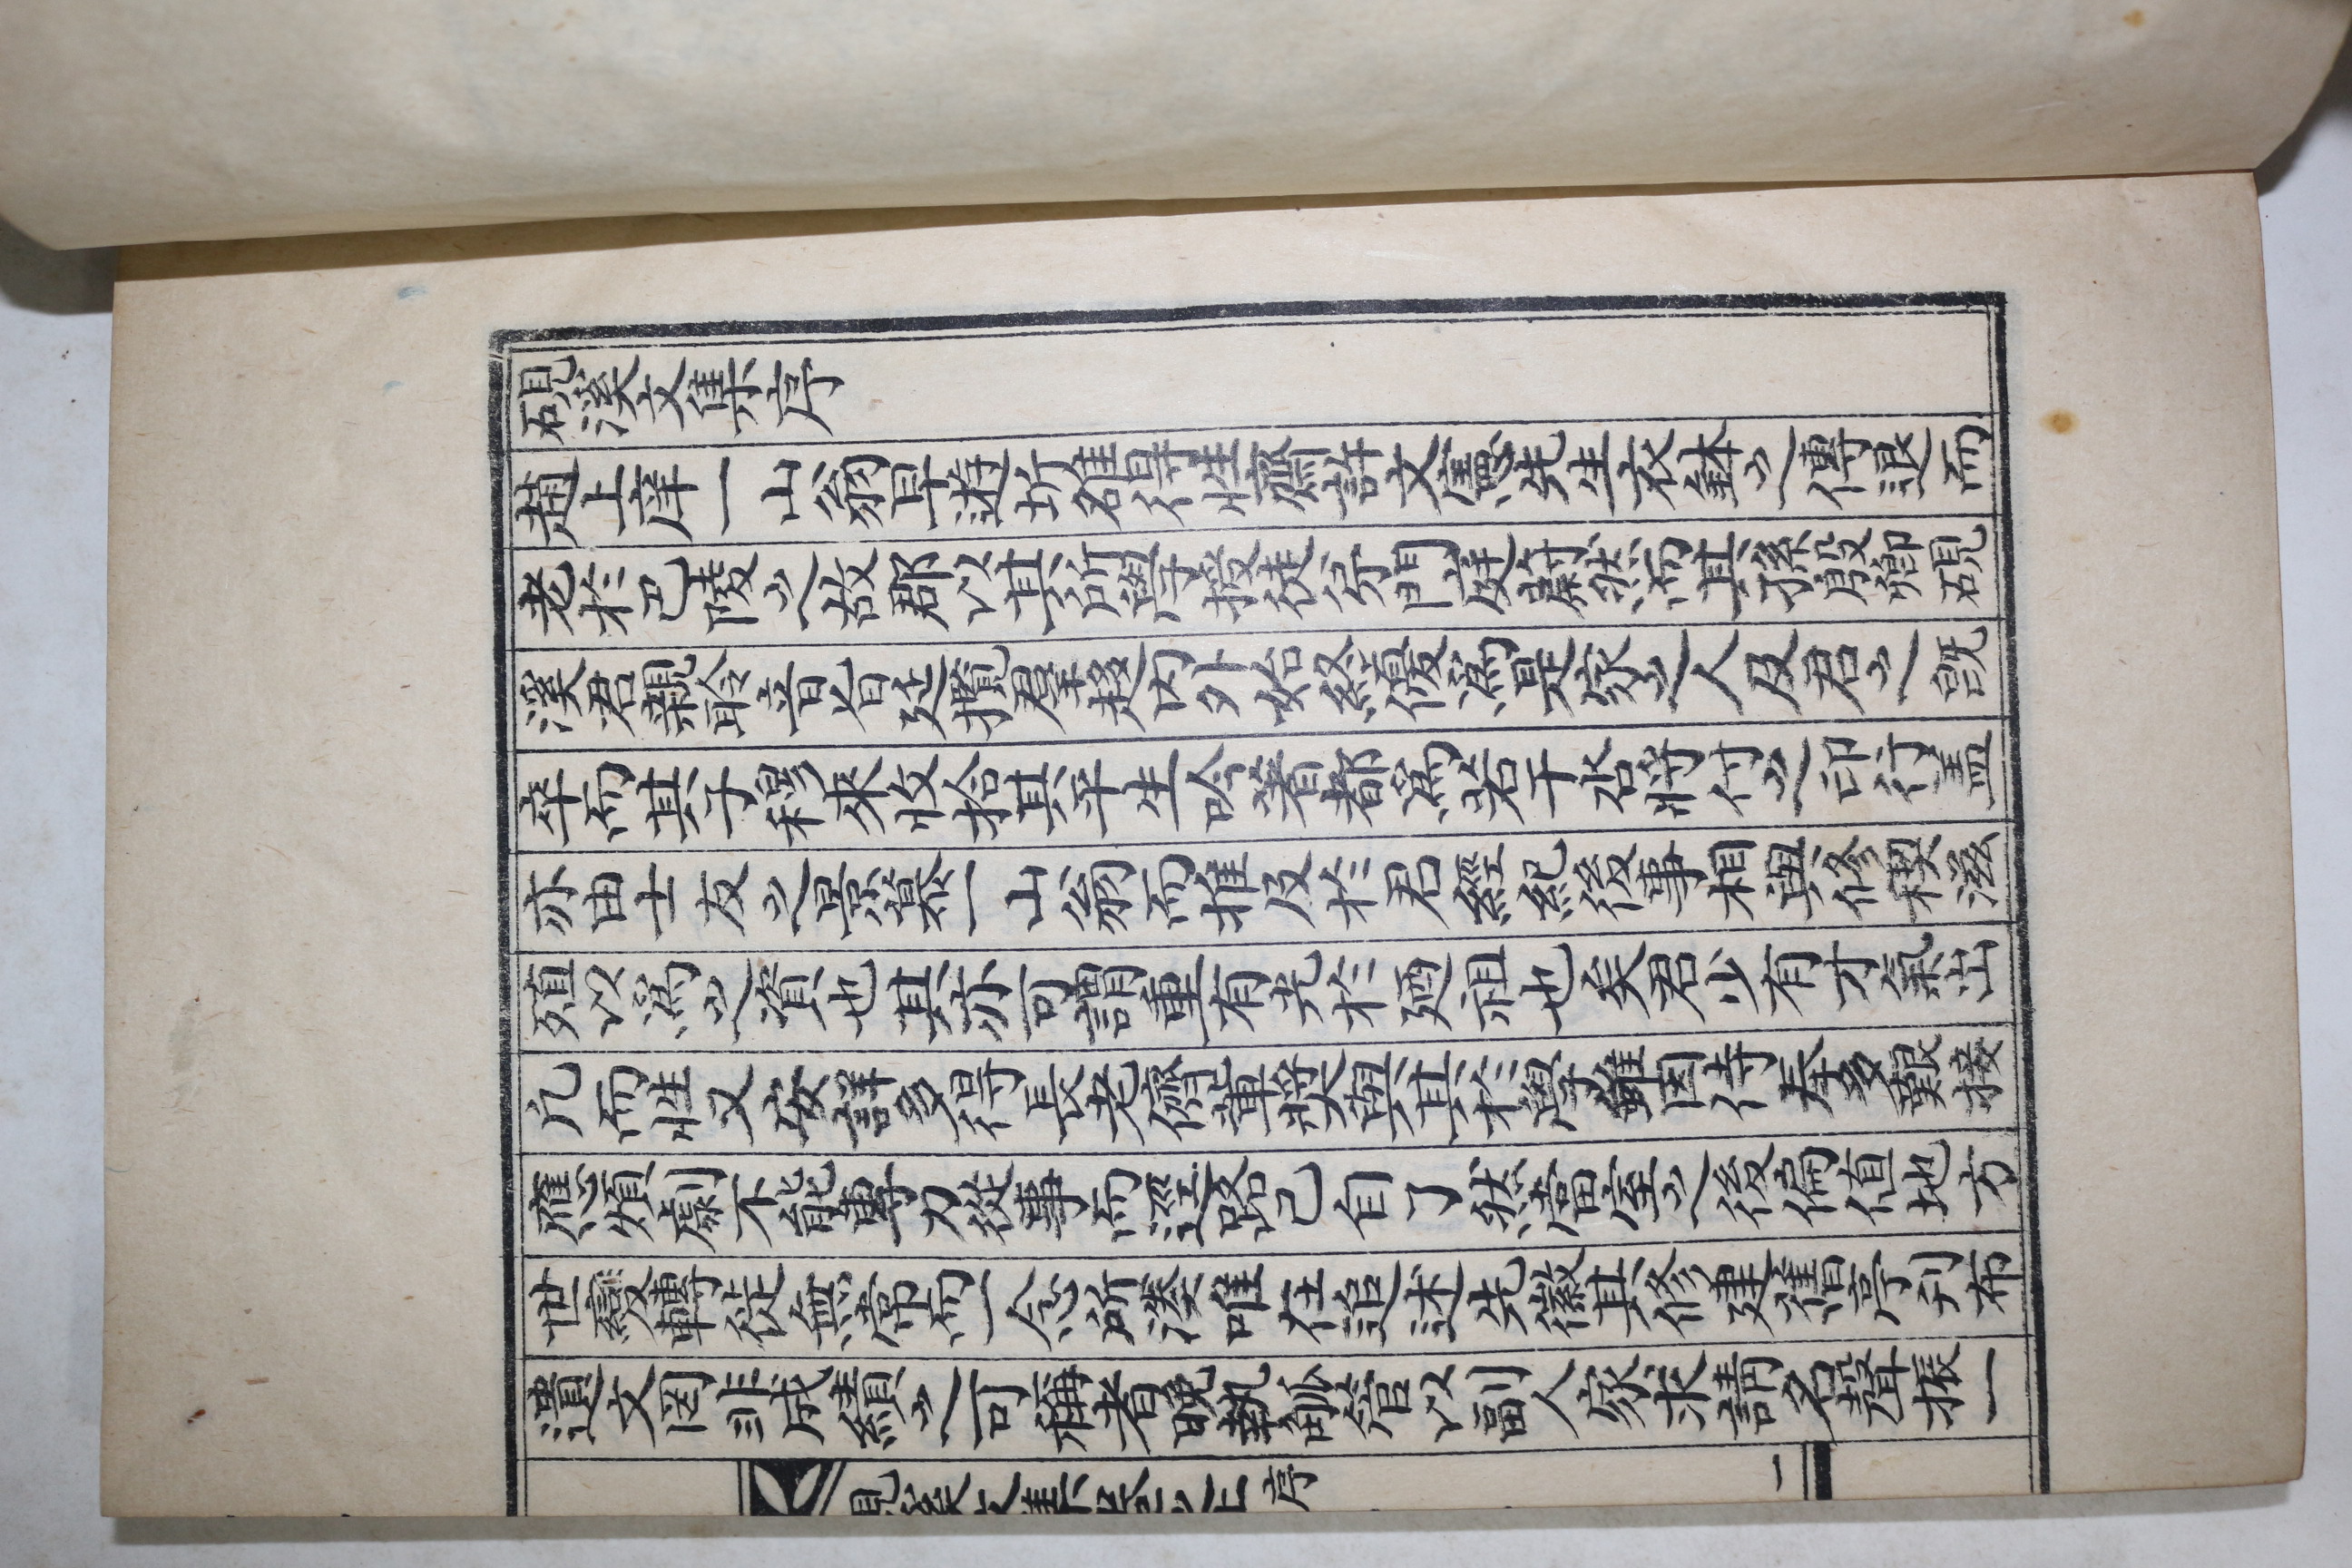 硯溪文集序
趙上庠一山翁早遊圻雒得性齋許文憲先生衣鉢之傳退而
老於巴陵之故郡以其所學授徒芬門庭蔚然而其孫殷卿硯
溪君親聆音旨延攬羣趍內外始終優爲是家之人及君之旣
卒而其子穆來收拾其平生吟著都爲若干沓將付之印行盖
亦由士友之景慕一山翁而推及於君經紀後事相與修稧滋
殖以爲之資也其亦可謂重有光於廼祖也矣君少有才氣出
凡而性又安詳多得長老儕輩奬與其於學雖因侍奉多艱接
應煩劇不能專力從事而逕路已自了然當室之後偏値地方
世變轉徙無常而一念所湊唯在追述先徽其修建舊亭刋布
遺文罔非成績之可稱者晚執觚管以副人家求請名聲振一
硯溪文集卷之上 序 一